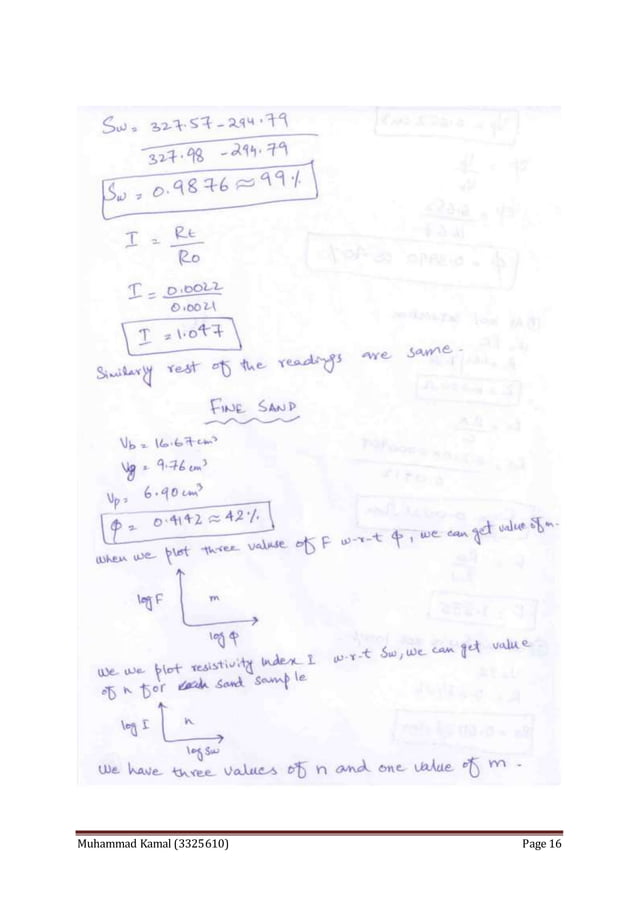 Sw = 327.57 - 294.79
327.98 - 294.79
Sw = 0.9876 ≈ 99%
I = Rt
Ro
I = 0.0022
0.0021
I = 1.047
Similarly rest of the readings are same.
FINE SAND
Vb = 16.67 cm³
Vg = 9.76 cm³
Vp = 6.90 cm³
Φ = 0.4142 ≈ 42%
when we plot three value of F w-r-t Φ, we can get value of m.
log F
m
log Φ
we we plot resistivity Index I w-r-t Sw, we can get value
of n for sand sample
log I
n
log Sw
We have three values of n and one value of m.
Muhammad Kamal (3325610) Page 16